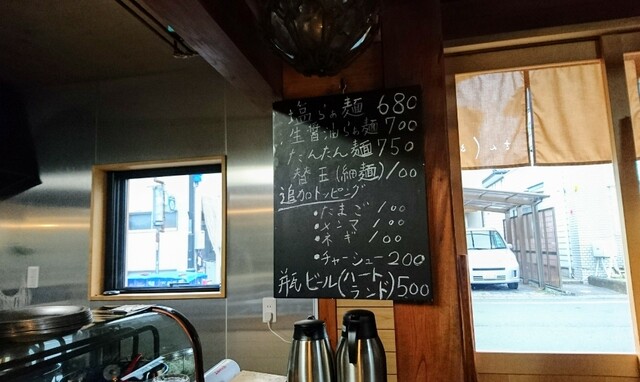 塩らぁ麺 680
生醤油らぁ麺 700
たんたん麺 750
替玉(細麺)100
追加トッピング
・たまご 100
・メンマ 100
・ネギ 100
・チャーシュー 200
瓶ビール(ハートランド)500